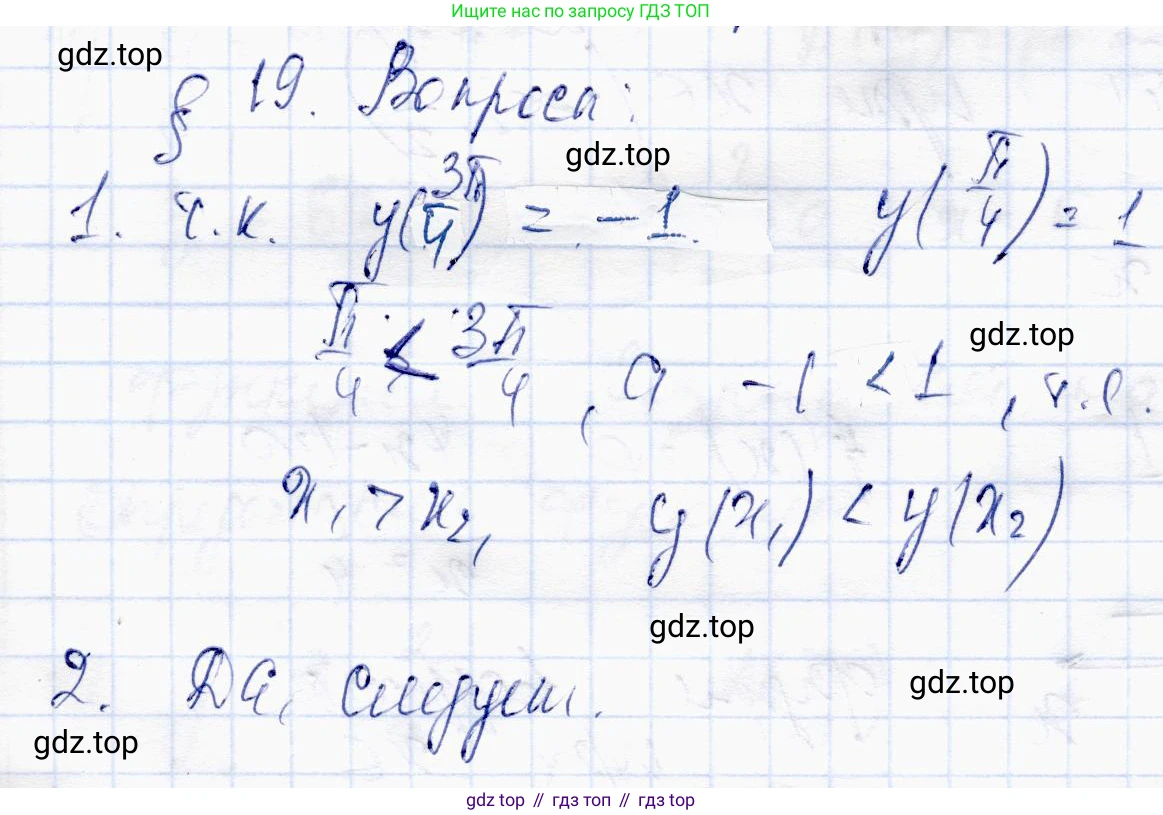 Ищите нас по запросу ГДЗ ТОП
gdz.top
§ 19. Вопросы:
gdz.top
1. т.к. y(3π/4) = -1 y(π/4) = 1
gdz.top
π/4 < 3π/4, а -1 < 1, т.е.
x₁ > x₂, y(x₁) < y(x₂)
gdz.top
2. Да, следует.
gdz.top
gdz.top
gdz top // гдз топ // gdz top